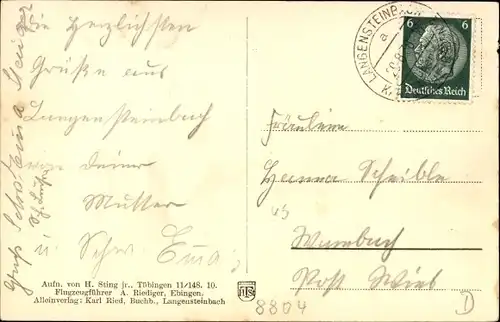 Die herzlichsten
Grüße aus
Langensteinbach
von Deiner
Mutter
u. Schw. Emma
Gruß
LANGENSTEINBACH
a
6 6
Deutsches Reich
Fräulein
Scheible
Wurmbach
Post
Aufn. von H. Sting jr., Tübingen 11/148. 10.
Flugzeugführer A. Riediger, Ebingen.
Alleinverlag: Karl Ried, Buchb., Langensteinbach
8804
D